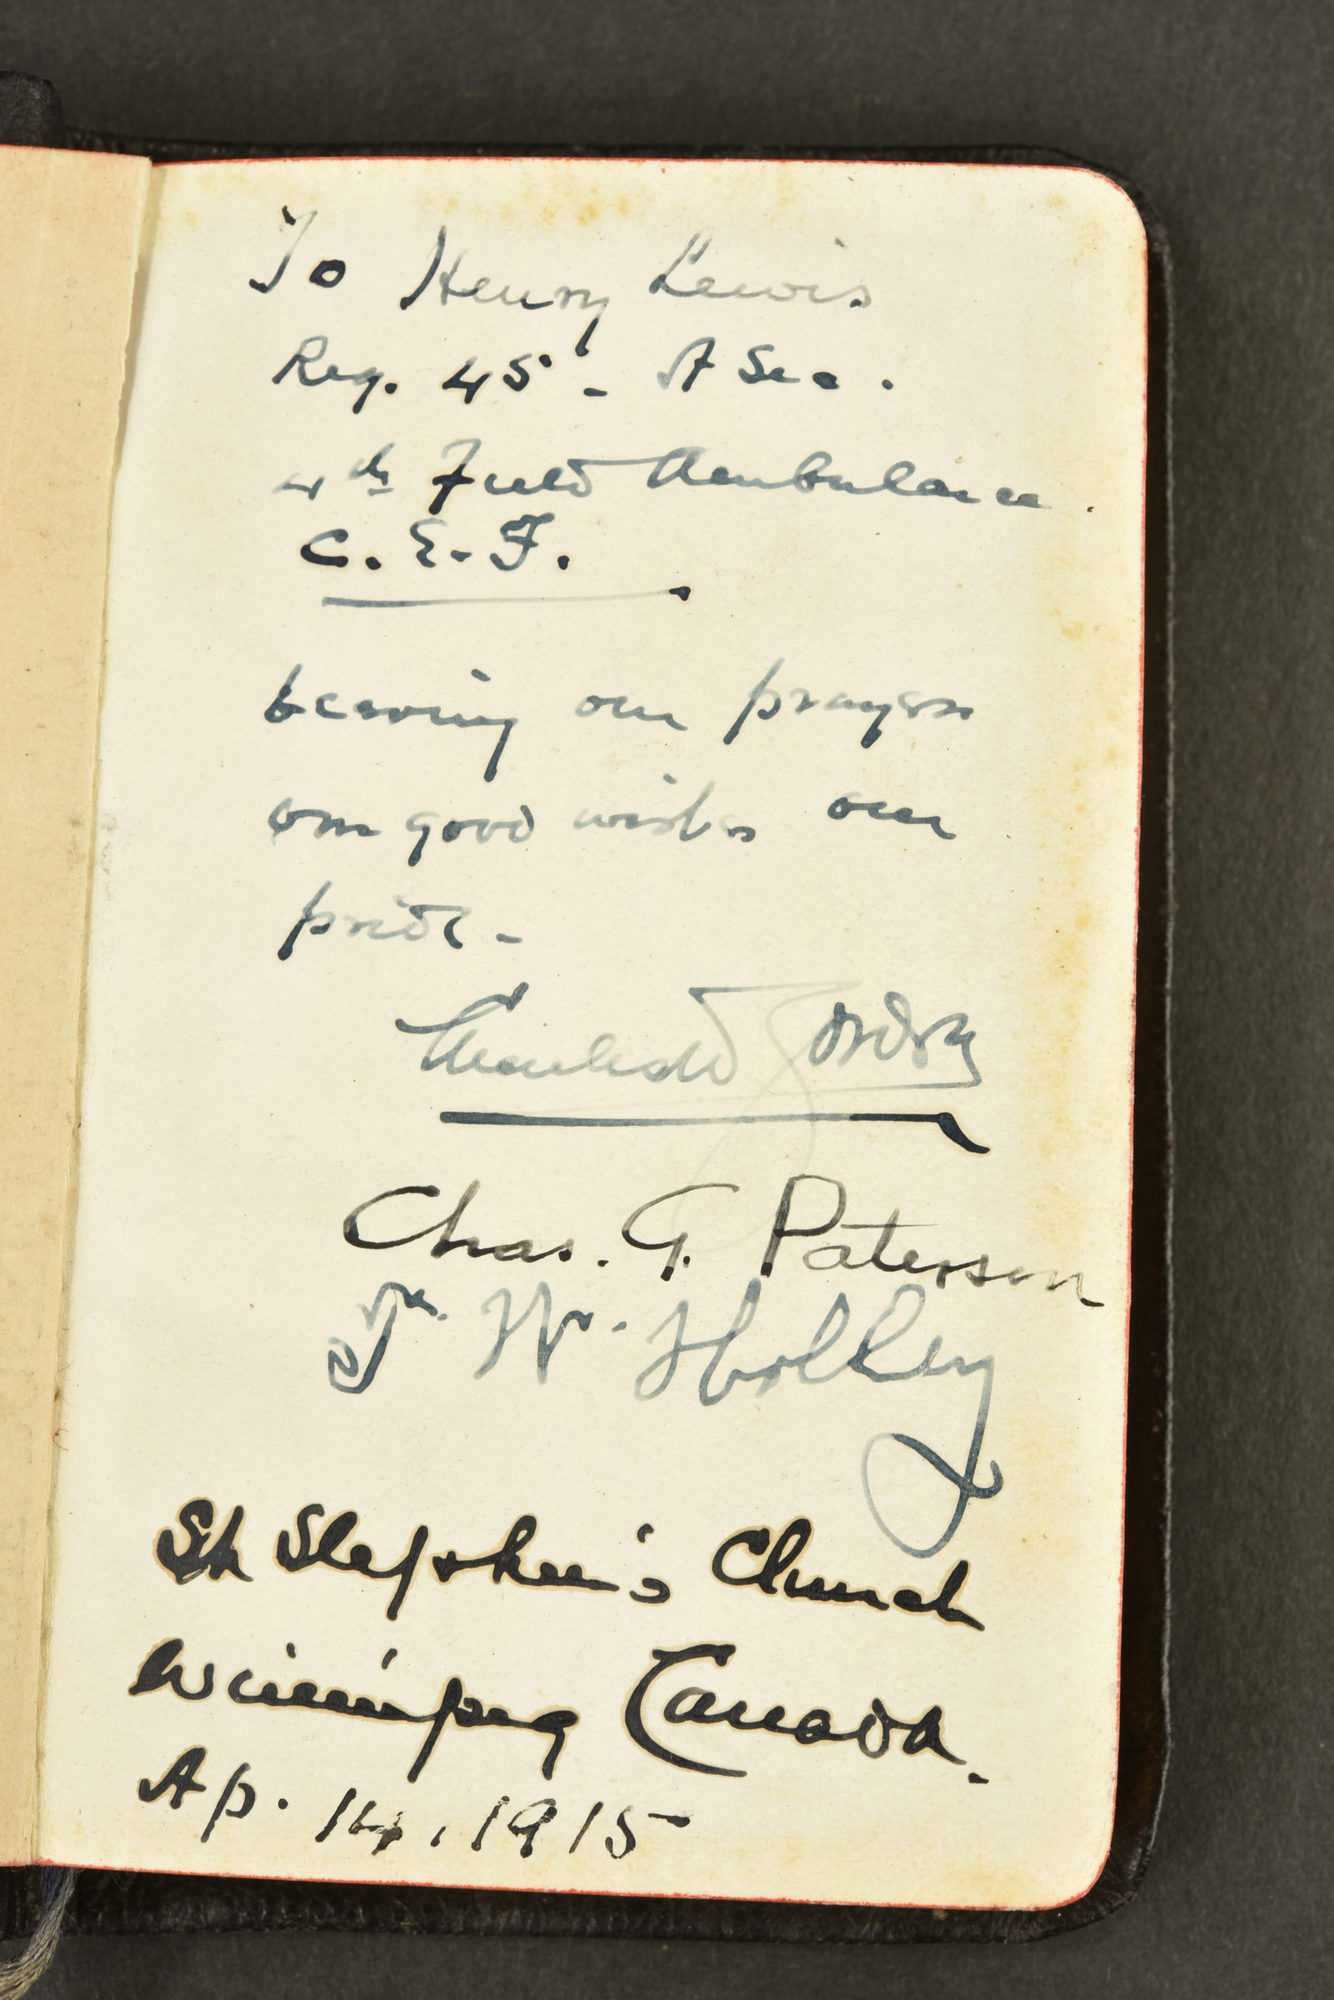 To Henry Lewis
Reg. 45 - A Sec.
4th Field Ambulance.
C. E. F.
bearing our prayers
our good wishes our
pride -
Chas. G. Paterson
Wm. Holley
St Stephen's Church
Winnipeg Canada.
Ap. 14, 1915